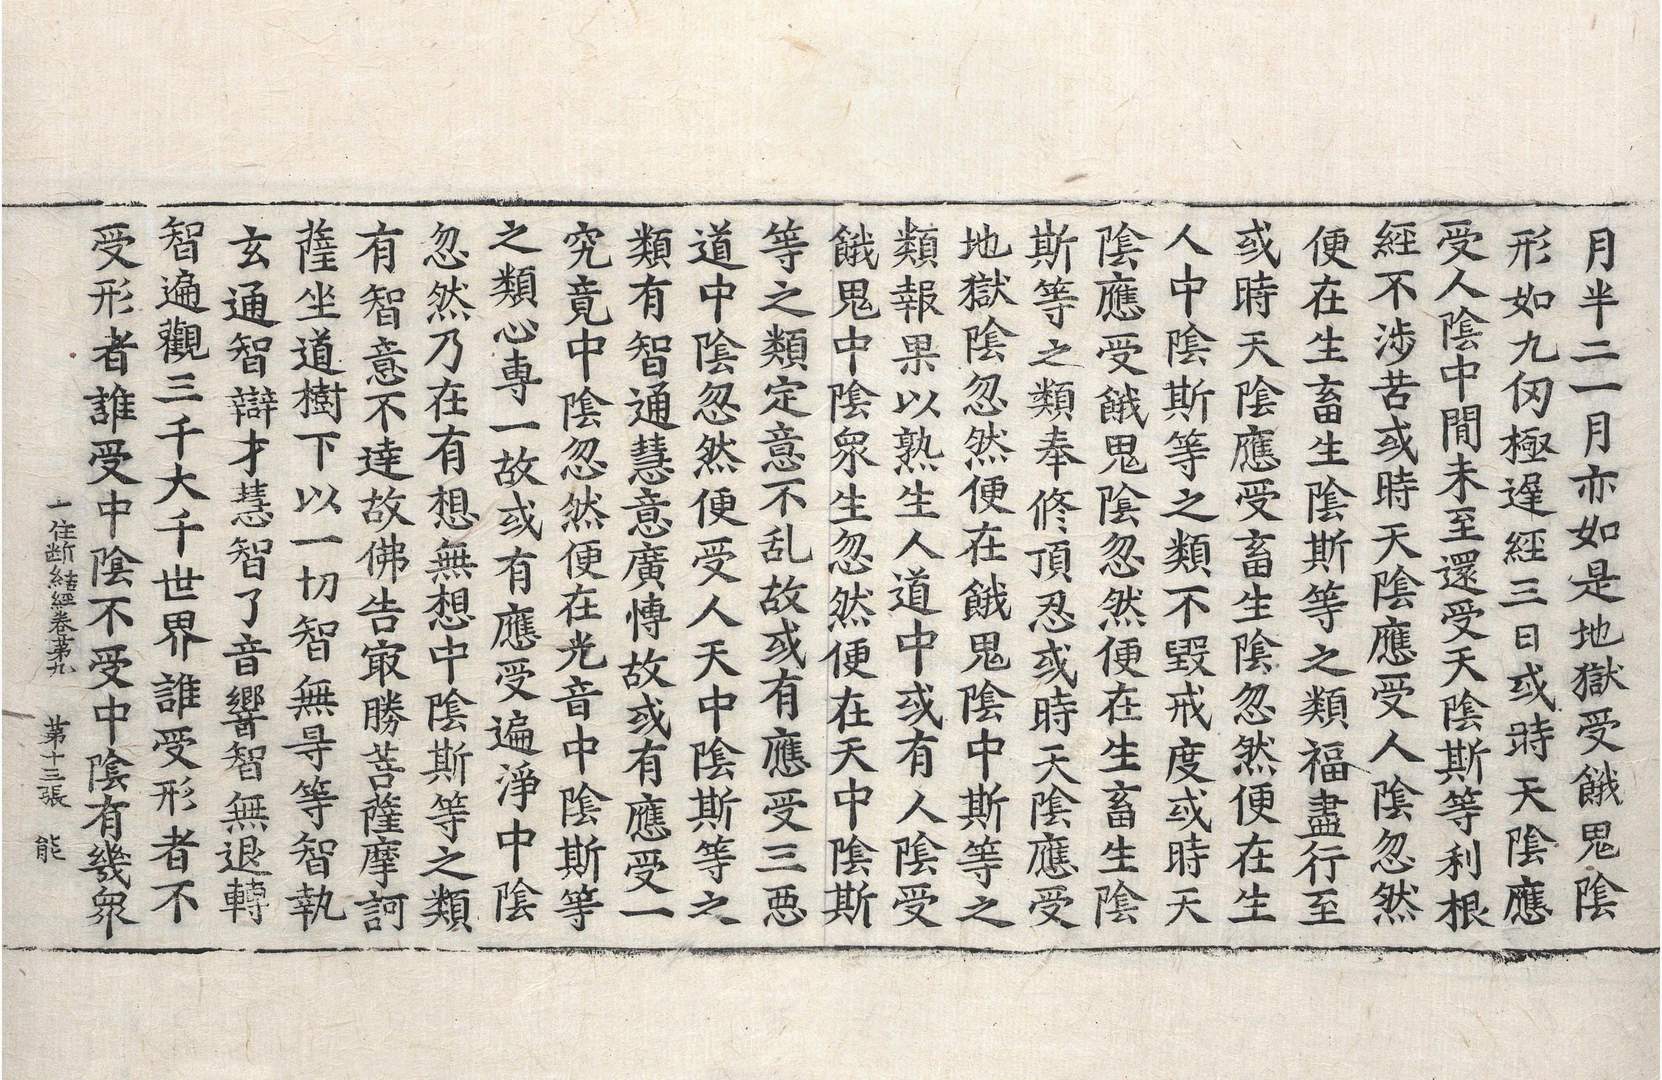 月半二一月亦如是地獄受餓鬼陰
形如九仞極遲經三日或時天陰應
受人陰中間未至還受天陰斯等利根
經不涉苦或時天陰應受人陰忽然
便在生畜生陰斯等之類福盡行至
或時天陰應受畜生陰忽然便在生
人中陰斯等之類不毀戒度或時天
陰應受餓鬼陰忽然便在生畜生陰
斯等之類奉修頂忍或時天陰應受
地獄陰忽然便在餓鬼陰中斯等之
類報果以熟生人道中或有人陰受
餓鬼中陰衆生忽然便在天中陰斯
等之類定意不乱故或有應受三恶
道中陰忽然便受人天中陰斯等之
類有智通慧意廣愽故或有應受一
究竟中陰忽然便在光音中陰斯等
之類心專一故或有應受遍淨中陰
忽然乃在有想無想中陰斯等之類
有智意不達故佛告㝡勝菩薩摩訶
薩坐道樹下以一切智無㝵等智執
玄通智辯才慧智了音響智無退轉
智遍觀三千大千世界誰受形者不
受形者誰受中陰不受中陰有幾衆
十住断結經卷第九 第十三張 能